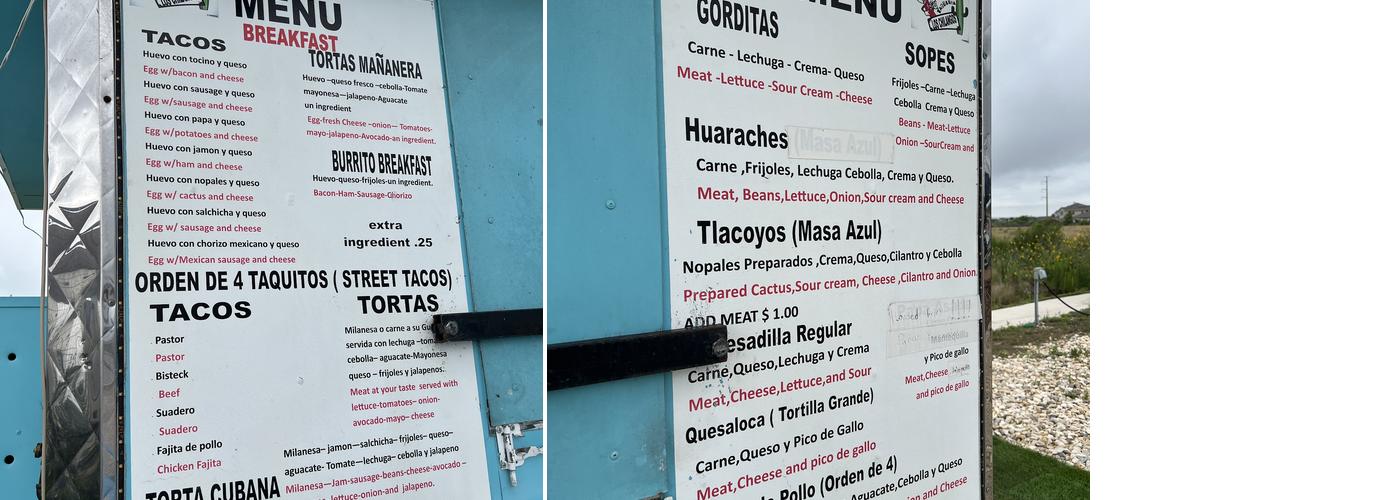 LOS CHILANGOS
MENU
BREAKFAST
TACOS
Huevo con tocino y queso
Egg w/bacon and cheese
Huevo con sausage y queso
Egg w/sausage and cheese
Huevo con papa y queso
Egg w/potatoes and cheese
Huevo con jamon y queso
Egg w/ham and cheese
Huevo con nopales y queso
Egg w/ cactus and cheese
Huevo con salchicha y queso
Egg w/ sausage and cheese
Huevo con chorizo mexicano y queso
Egg w/Mexican sausage and cheese
TORTAS MAÑANERA
Huevo –queso fresco –cebolla-Tomate
mayonesa—jalapeno-Aguacate
un ingredient
Egg-fresh Cheese –onion— Tomatoes-
mayo-jalapeno-Avocado-an ingredient.
BURRITO BREAKFAST
Huevo-queso-frijoles-un ingredient.
Bacon-Ham-Sausage-Chorizo
extra
ingredient .25
ORDEN DE 4 TAQUITOS ( STREET TACOS)
TACOS
Pastor
Pastor
Bisteck
Beef
Suadero
Suadero
Fajita de pollo
Chicken Fajita
TORTAS
Milanesa o carne a su
servida con lechuga
cebolla– aguacate-Mayonesa
queso – frijoles y jalapenos.
Meat at your taste served with
lettuce-tomatoes– onion-
avocado-mayo– cheese
TORTA CUBANA
Milanesa– jamon—salchicha– frijoles– queso–
aguacate- Tomate—lechuga– cebolla y jalapeno
Milanesa—Jam-sausage-beans-cheese-avocado –
lettuce-onion-and jalapeno.
MENU
LOS CHILANGOS
GORDITAS
Carne - Lechuga - Crema- Queso
Meat -Lettuce -Sour Cream -Cheese
SOPES
Frijoles –Carne –Lechuga
Cebolla Crema y Queso
Beans - Meat-Lettuce
Onion –SourCream and
Huaraches (Masa Azul)
Carne ,Frijoles, Lechuga Cebolla, Crema y Queso.
Meat, Beans,Lettuce,Onion,Sour cream and Cheese
Tlacoyos (Masa Azul)
Nopales Preparados ,Crema,Queso,Cilantro y Cebolla
Prepared Cactus,Sour cream, Cheese ,Cilantro and Onion.
ADD MEAT $ 1.00
esadilla Regular
Carne,Queso,Lechuga y Crema
Meat,Cheese,Lettuce,and Sour
y Pico de gallo
Meat,Cheese
and pico de gallo
Quesaloca ( Tortilla Grande)
Carne,Queso y Pico de Gallo
Meat,Cheese and pico de gallo
Pollo (Orden de 4)
Aguacate,Cebolla y Queso
and Cheese